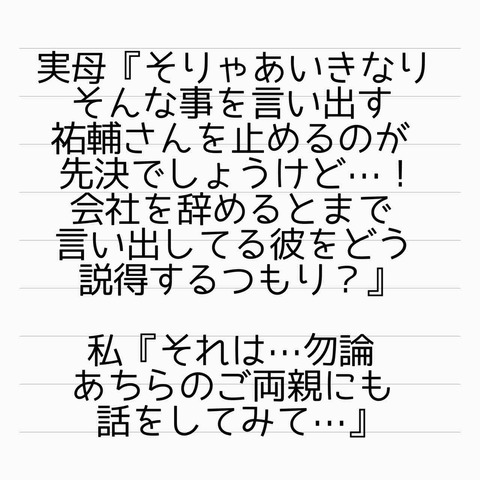 実母『そりゃあいきなり
そんな事を言い出す
祐輔さんを止めるのが
先決でしょうけど…！
会社を辞めるとまで
言い出してる彼をどう
説得するつもり？』
私『それは…勿論
あちらのご両親にも
話をしてみて…』